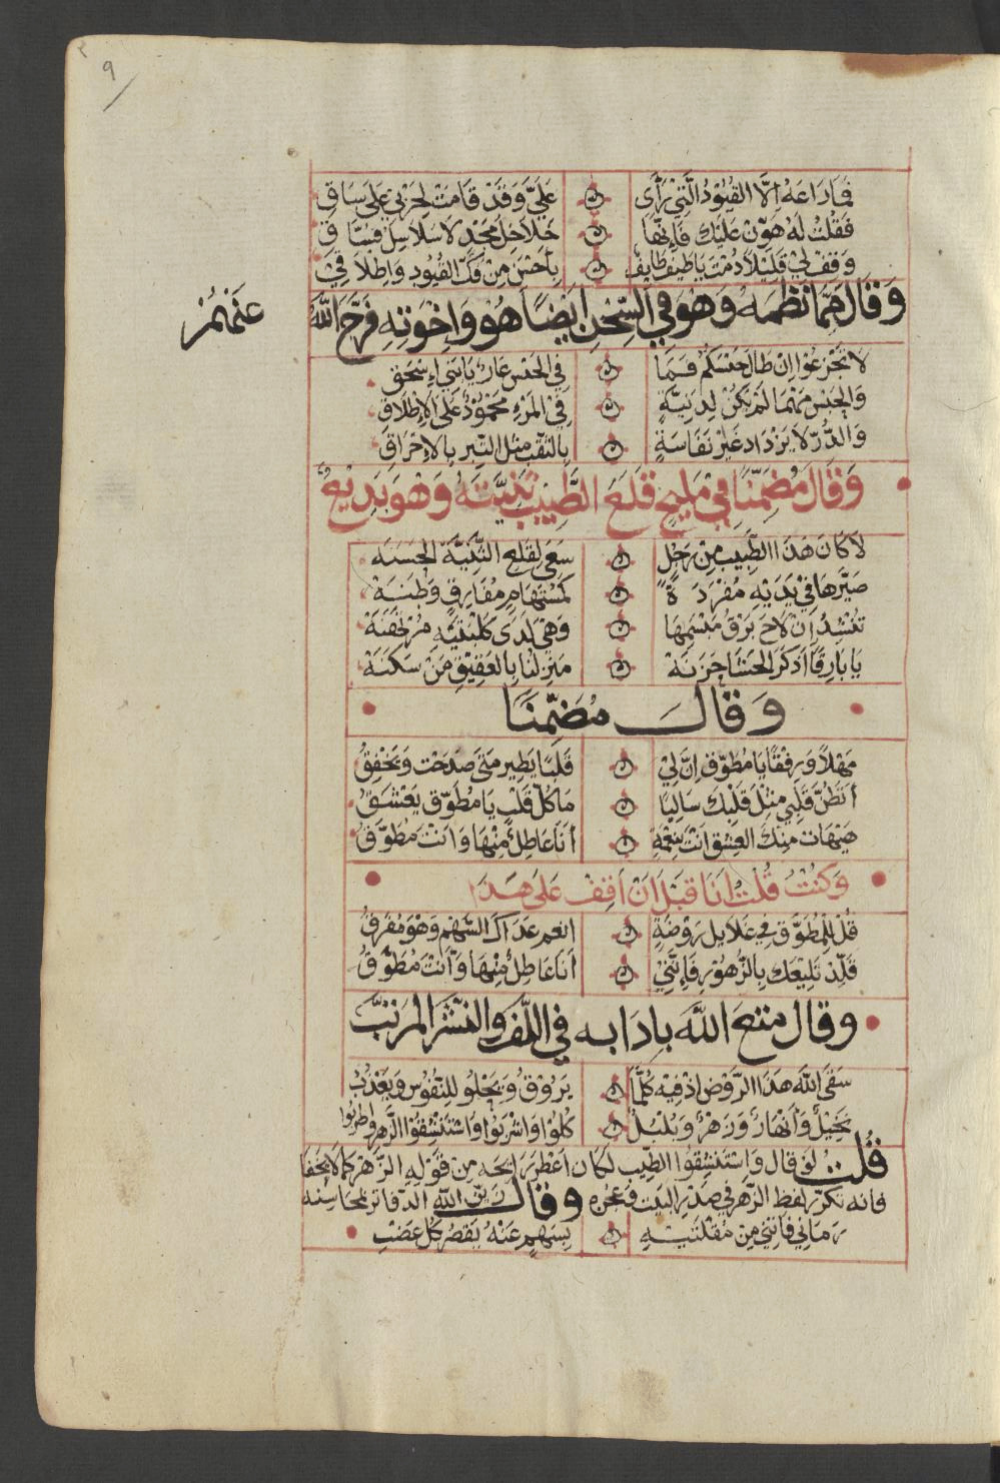 ٩
فما راعه الا القيود التي رأى علي وقد قامت لحربي على ساق
فقلت له هون عليك فانها خلاخل مجد لا سلاسل فساق
وقف لي قليلا دمت يا طيف طايف باحسن من فك القيود واطلاقي
وقال مما نظمه وهو في السجن ايضا هو واخوته فرج الله
عنهم
لا تجزعوا ان طال حبسكم فما في الحبس عار يا بني اسحق
والحبس مهما لم يكن لدنية في المرء محمود على الاطلاق
والدر لا يزداد غير نفاسة بالثقب مثل التبر بالاحراق
وقال مضمنا في مليح قلع الطبيب ثنيته وهو بديع
لا كان هذا الطبيب من رجل سعى لقلع الثنية الحسنه
صيرها في يديه مفردة كمستهام مفارق وطنه
تنشد ان لاح برق مبسمها وهي لدى كلبتيه مرتهنه
يا بارقا اذكر الحشا حزنه منزلنا بالعقيق من سكنه
وقال مضمنا
مهلا ورفقا يا مطوق ان لي قلبا يطير متى صدحت ويخفق
اتظن قلبي مثل قلبك ساليا ما كل قلب يا مطوق يعشق
هيهات منك العشق انت بنعمة انا عاطل منها وانت مطوق
وكنت قلت انا قبل ان اقف على هذا
قل للمطوق في غلايل روضة انعم عداك الشهم وهو مفرق
قلد بليعك بالزهور فانني انا عاطل منها وانت مطوق
وقال متع الله بادابه في اللف والنشر المرتب
سقى الله هذا الروض اذ فيه كلما يروق ويحلو للنفوس ويعذب
نخيل وانهار وزهر وبلبل كلوا واشربوا واستنشقوا الزهر واطربوا
قلت لو قال واستنشقوا الطيب لكان اعطر رايحه من قوله الزهر كما لا يخفا
فانه تكرر لفظ الزهر في صدر البيت وعجزه وقال زين الله الدفاتر بمحاسنه
رماني فاتني من مقلتيه بسهم عنه يقصر كل عضب